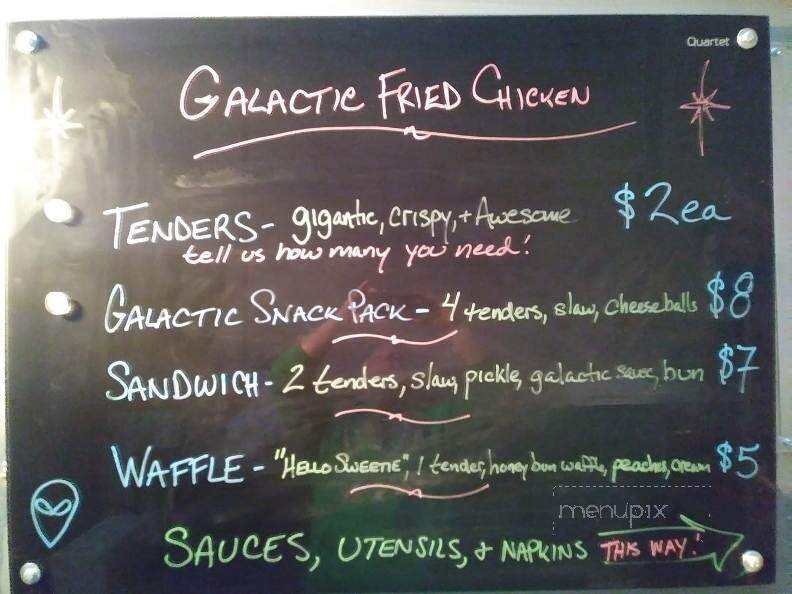 Quartet
GALACTIC FRIED CHICKEN
TENDERS - gigantic, crispy, + Awesome $2ea
tell us how many you need!
GALACTIC SNACK PACK - 4 tenders, slaw, cheeseballs $8
SANDWICH - 2 tenders, slaw, pickle, galactic sauce, bun $7
WAFFLE - "HELLO SWEETIE", 1 tender, honey bun waffle, peaches, cream $5
menupix
SAUCES, UTENSILS, + NAPKINS THIS WAY!